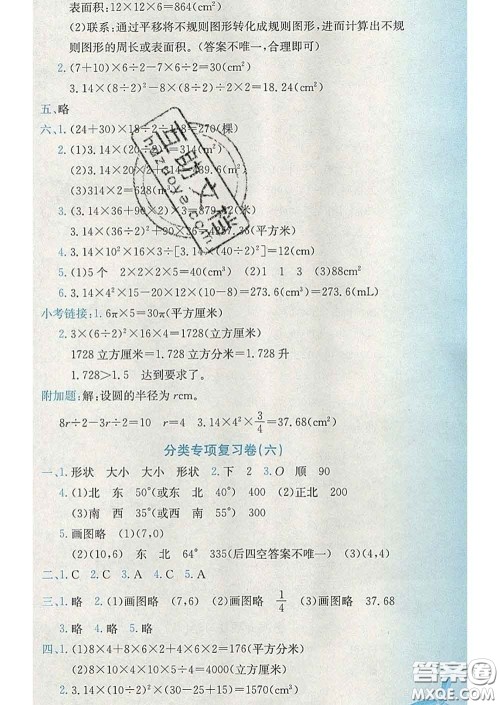 表面积:12×12×6=864(cm²)
(2)联系:通过平移将不规则图形转化成规则图形,进而计算出不规
则图形的周长或表面积。(答案不唯一,合理即可)
2.(7+10)×6÷2-7×6÷2=30(cm²)
3.14×(8÷2)²-8×(8÷2)÷2×2=18.24(cm²)
五、略
六、1.(24+30)×18÷2÷1.8=270(棵)
2.(1)3.14×(20÷2)²=314(cm²)
(2)(31.4÷
(3)314×2=628(cm²)
3.14×
4.3.14×10²×16×3÷[3.14×(40÷2)²]=12(cm)
5.(1)5个 2×2×2×5=40(cm³) (2)1 1 3 (3)88cm²
6.3.14×(8÷2)²×15-20×12×(10÷5)=273.6(cm³)=273.6(mL)
小考链接:1.6π×5=30π(平方厘米)
2.3×(6÷2)²×16×4=1728(立方厘米)
1728立方厘米=1.728立方分米=1.728升
1.728>1.5 达到要求了。
附加题:解:设圆的半径为rcm。
8r÷2-3r÷2=10 r=4 3.14×4²×3/4=37.68(cm²)
分类专项复习卷(六)
一、1.形状 大小 大小 形状 2.下 2 3.O 顺 90
4.(1)北 东 50°(或东 北 40°) (2)正北 200
(3)南 西 35°(或西 南 55°)
5.画图略 (1)(7,0)
(2)(10,6) 东 北 64° 335(后四空答案不唯一) (3)(4,4)
二、1.C 2.C 3.A 4.C 5.A
三、1.略 2.(1)画图略 (7,6) (2)画图略 1/4 (3)画图略 37.68
3.略 4.略 5.略
四、1.(1)8×4+8×6×2+4×6×2=176(平方分米)
(2)8×10×4×10×5×2÷8=4000(立方厘米)
2.3.14×(20÷2)²×(30-25+15)=1570(cm³)
互助文档
hdzuoye.com
答案圈
MXQE.COM